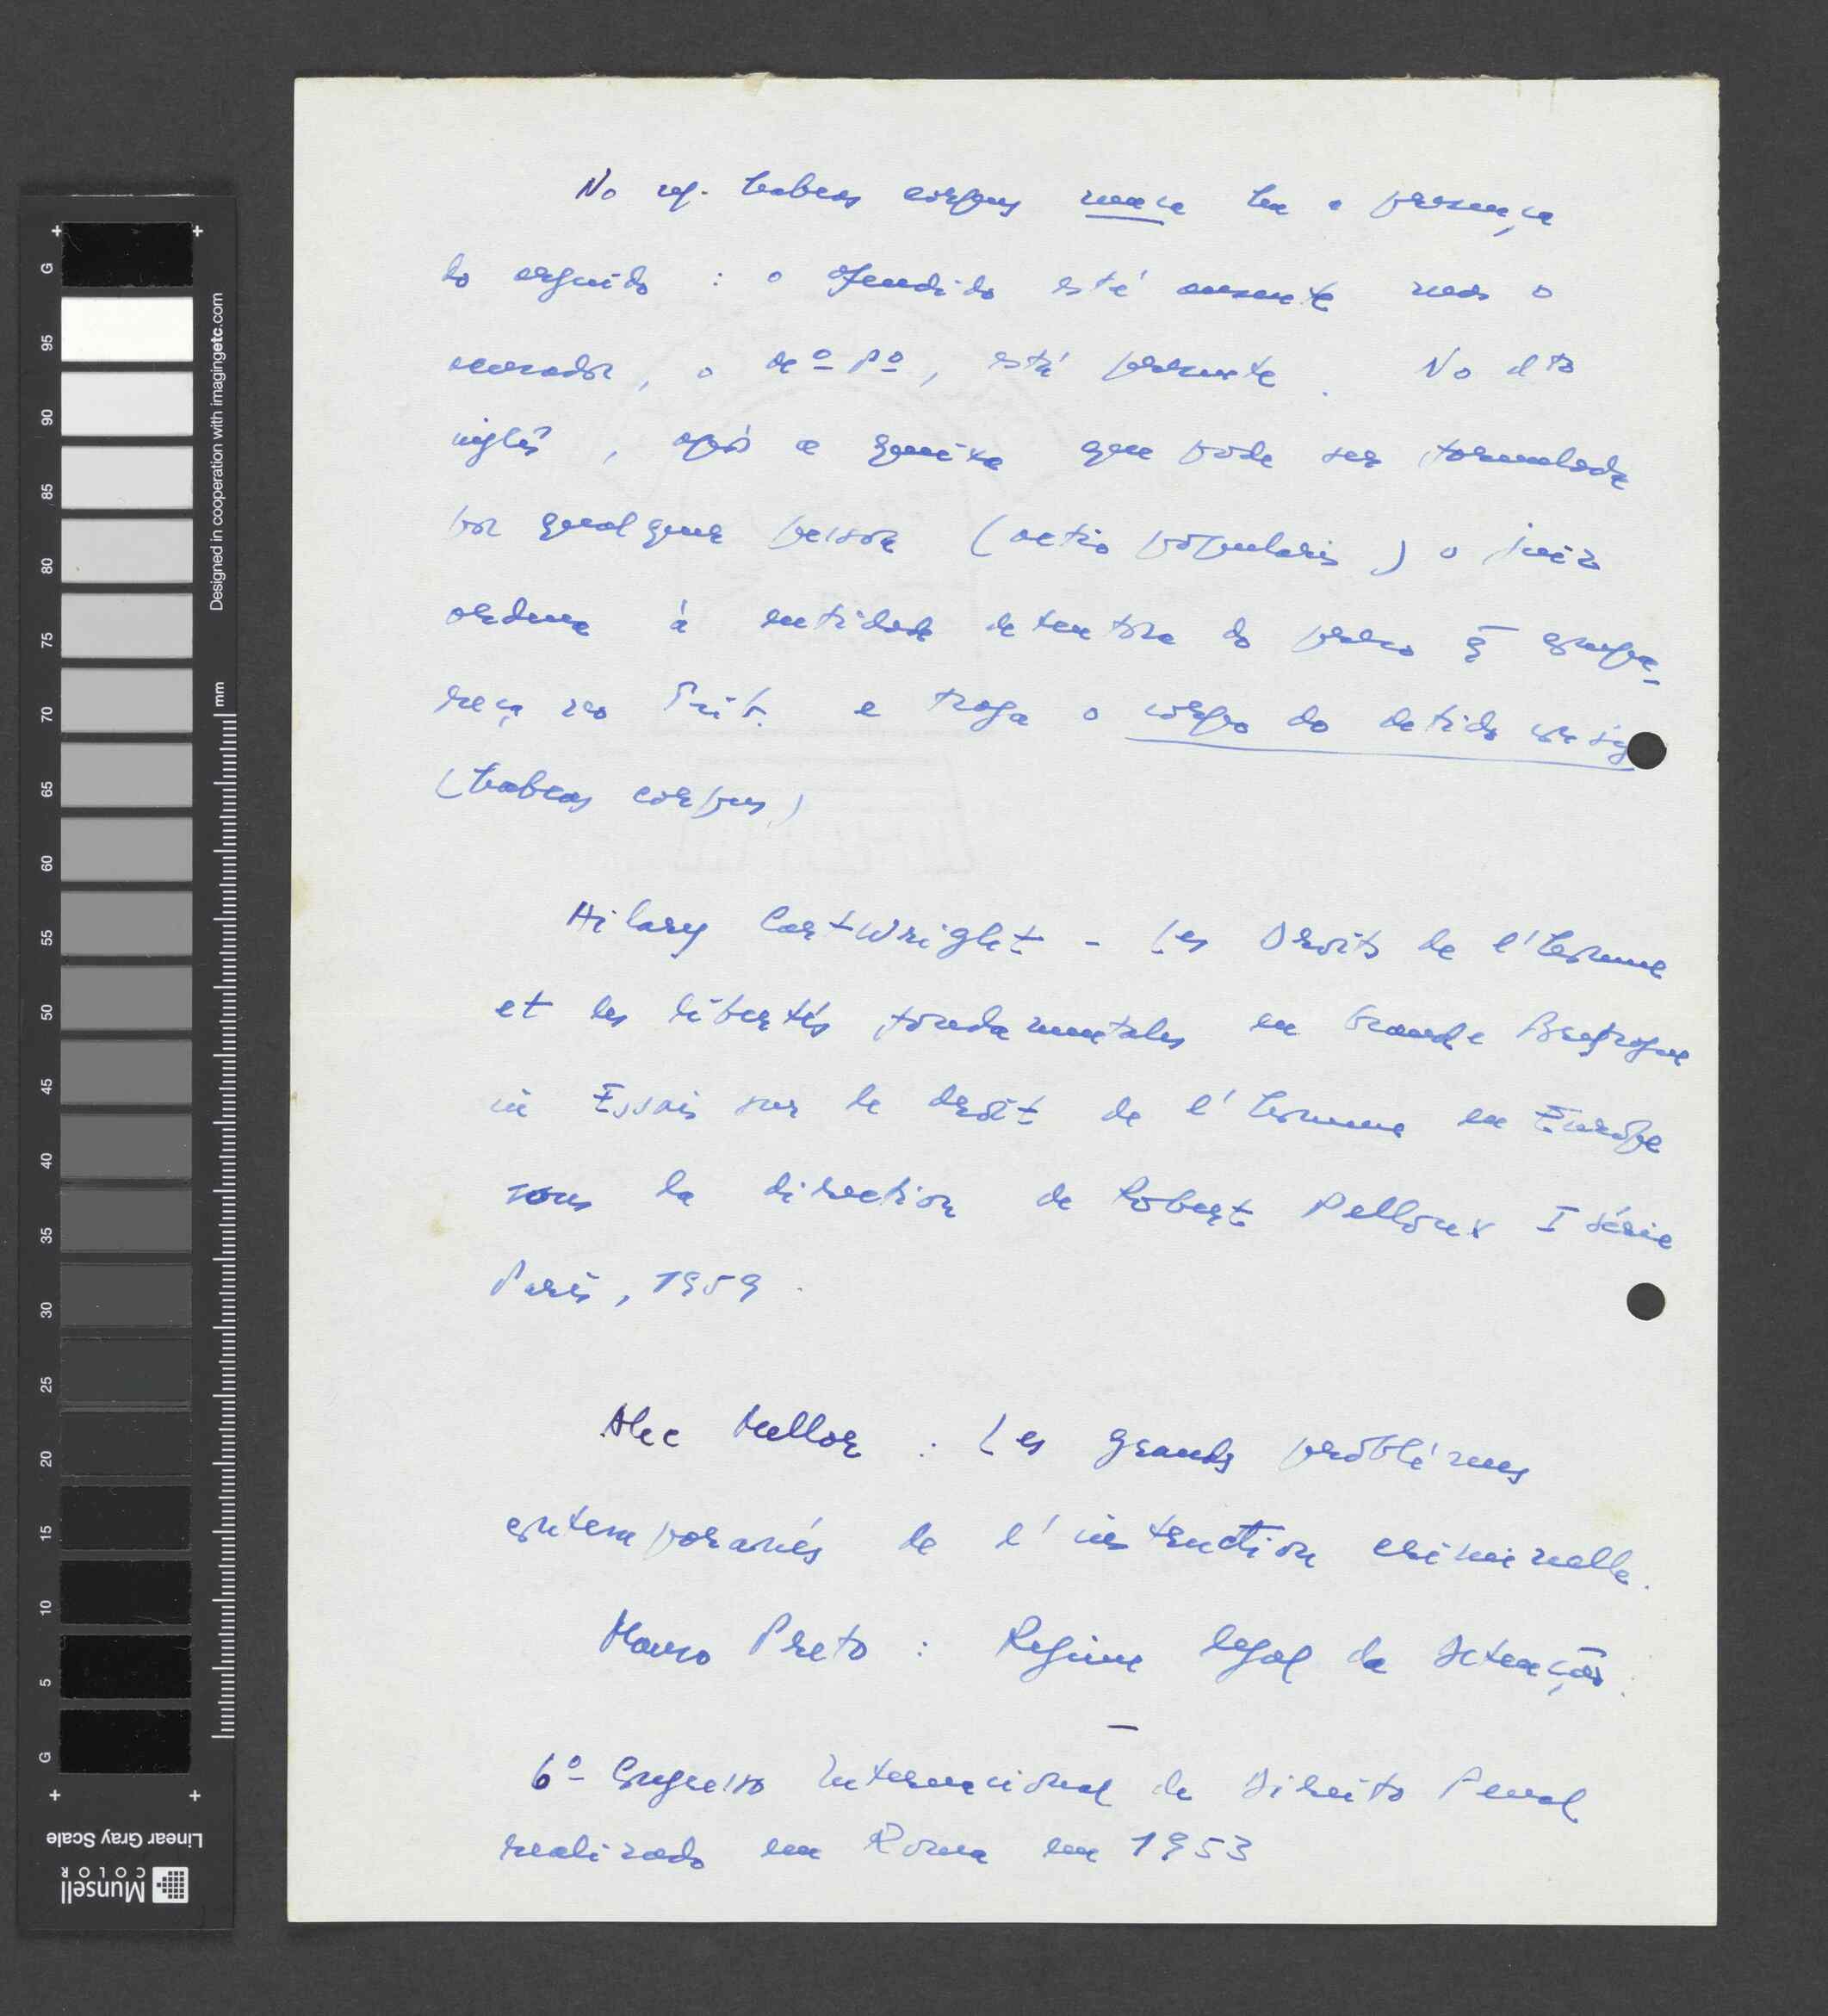 No rg. habeas corpus nunca há a presença
do arguido : o ofendido está ausente mas o
acusador, o Mº Pº, está presente. No dto
inglês, após a queixa que pode ser formulada
por qualquer pessoa (actio popularis) o juiz
ordena à entidade detentora do preso q̄ compa-
reça no Trib. e traga o corpo do detido consigo
(habeas corpus)
Hilary Cartwright - Les Droits de l'homme
et les libertés fondamentales en Grande Bretagne
in Essais sur le droit de l'homme en Europe
sous la direction de Robert Pelloux I série
Paris, 1959.
Alec Mellor : Les grands problémes
contemporanés de l'instruction criminelle.
Mauro Preto : Regime legal da Detenção.
6º Congresso Internacional de Direito Penal
realizado em Roma em 1953
Designed in cooperation with imagingetc.com
mm
G
95
90
85
80
75
70
65
60
55
50
45
40
35
30
25
20
15
10
5
G
Linear Gray Scale
Munsell
COLOR